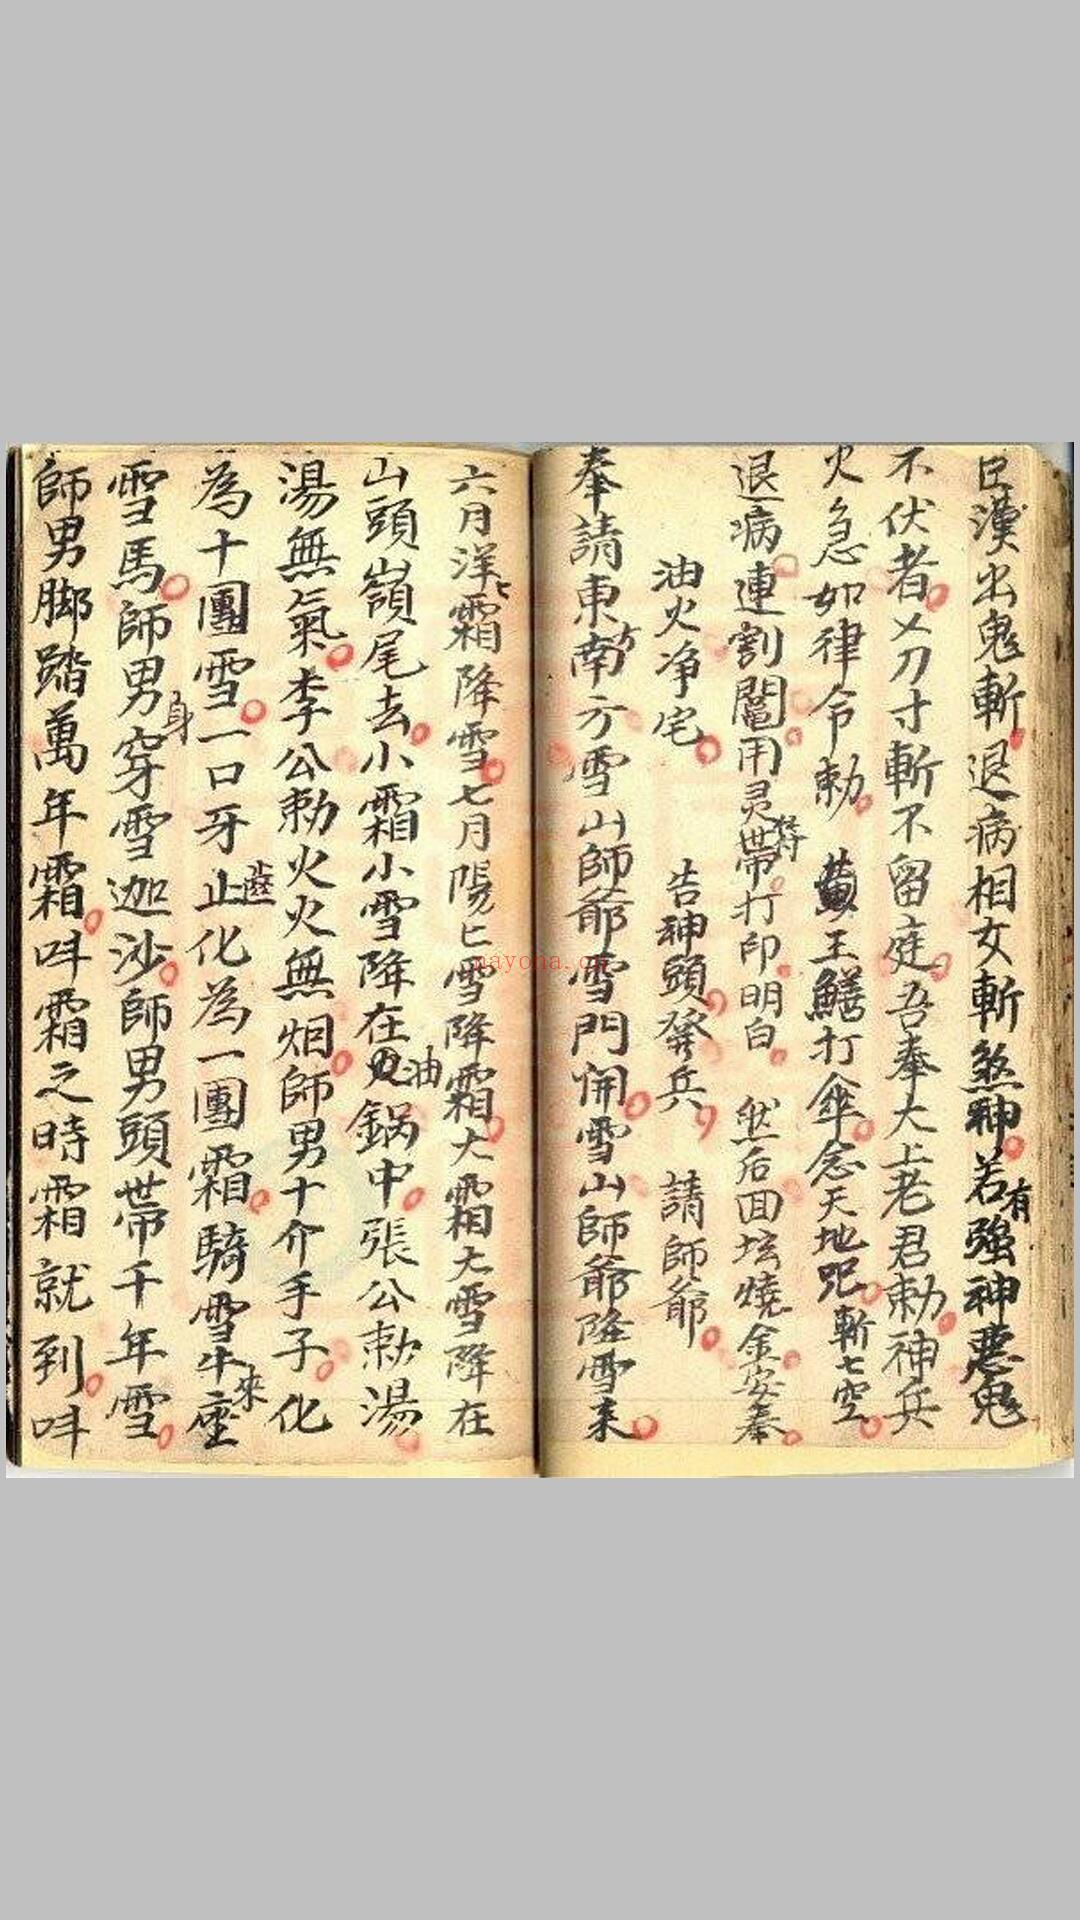 漢出鬼斬退病相女斬煞神若有強神惡鬼
不伏者乂刀寸斬不留庭吾奉大上老君勅神兵
火急如律令勅 王鱔打傘念天地咒斬七空
退病連割鬮用灵符帶打印明白 然后回坛燒金安奉
油火净宅 告神頭發兵 請師爺
奉請東南方雪山師爺雪門開雪山師爺降雪来
六月洋七霜降雪七月陽匕雪降霜大霜大雪降在
山頭嶺尾去小霜小雪降在油鍋中張公勅湯
湯無氣李公勅火火無烟師男十介手子化
為十團雪一口牙止化為一團霜騎雪牛來座
雪馬師男身穿雪迦沙師男頭帶千年雪
師男脚踏萬年霜呌霜之時霜就到呌
nayona.cn